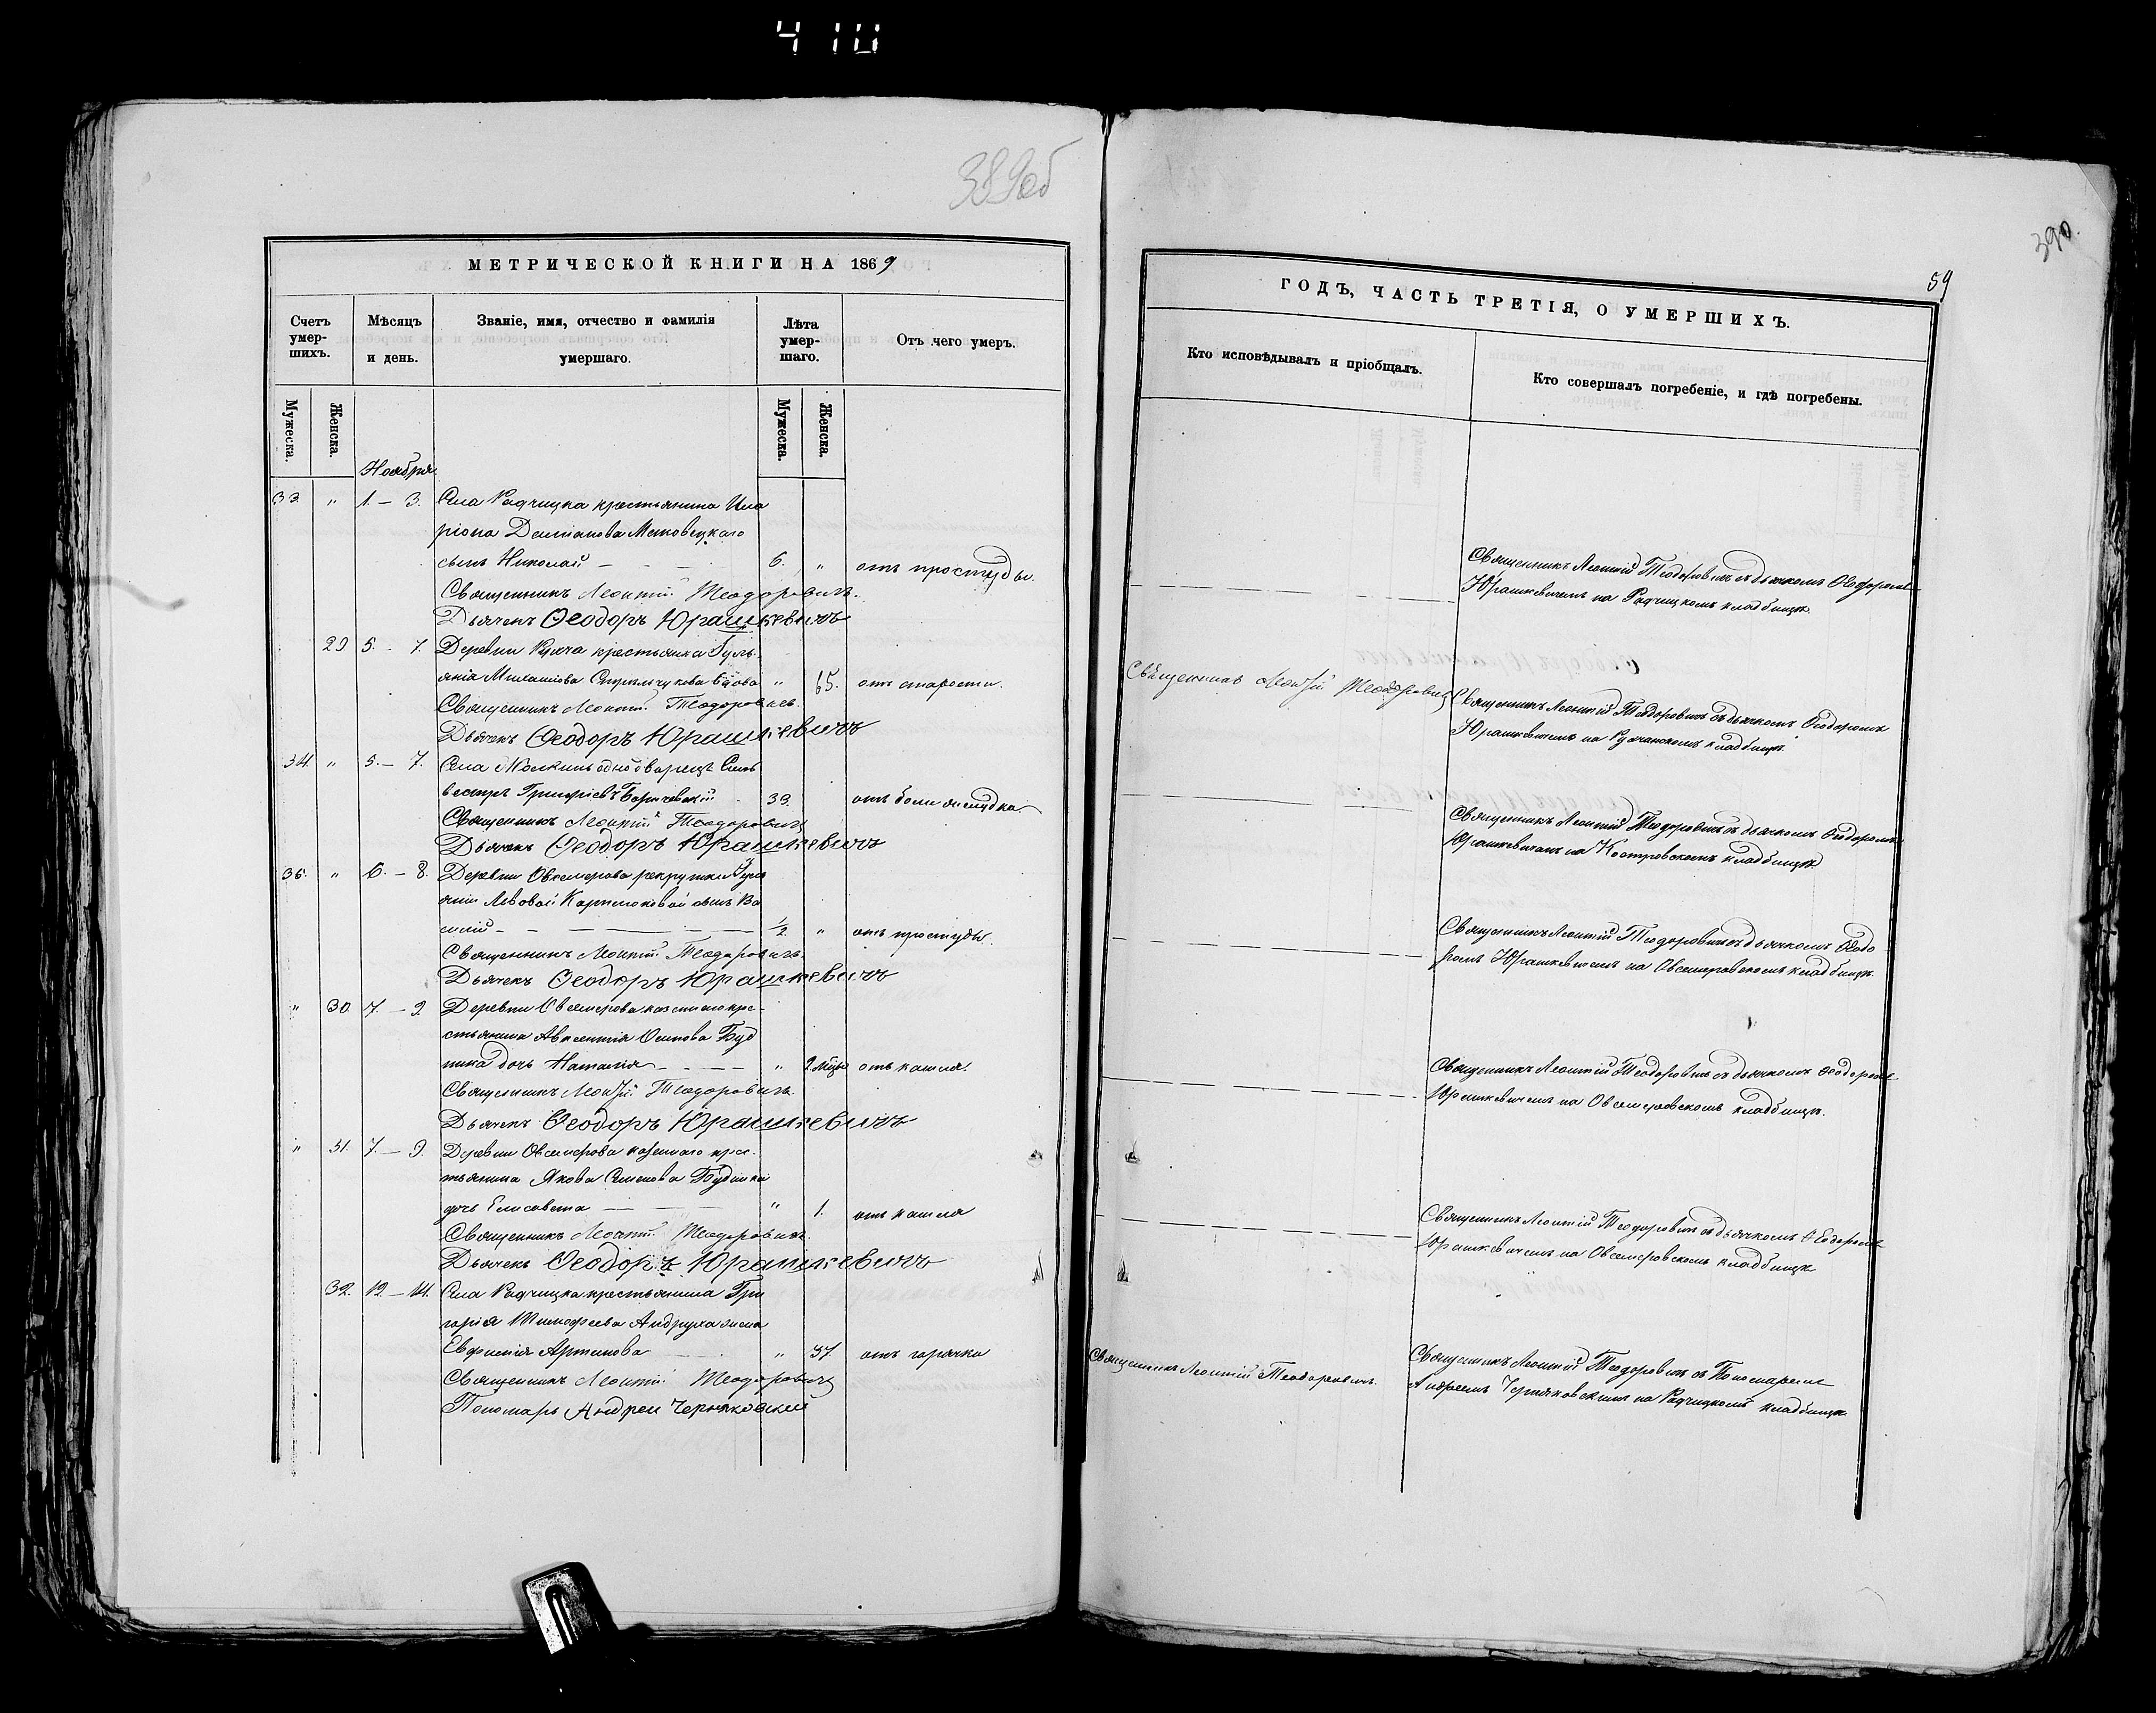 410
389об
390.
59
МЕТРИЧЕСКОЙ КНИГИ НА 1869
Счетъ умер-шихъ.
Мѣсяцъ и день.
Званіе, имя, отчество и фамилія умершаго.
Лѣта умер-шаго.
Отъ чего умеръ.
Мужеска.
Женска.
Мужеска.
Женска.
Ноября.
33. " 1 – 3. Села Радчицка крестьянина Ила
ріона Даміанова Маковецкаго
сынъ Николай – – – 6. " отъ простуды.
Священникъ Леонтій Теодоровичъ.
Дьячекъ Ѳеодоръ Юрашкевичъ
29 5. – 7. Деревни крестьянка Іулі-
анія 65. отъ старости.
Священникъ Леонтій Теодоровичъ
Дьячекъ Ѳеодоръ Юрашкевичъ
34. " 5. – 7. Села однодворецъ Силь
вестръ 39. отъ боли желудка
Священникъ Леонтій Теодоровичъ
Дьячекъ Ѳеодоръ Юрашкевичъ
35. " 6. – 8. Деревни Овсемерова рекрутки Іулі
аніи Львовой сынъ Ва
силій – – – 1/2 " отъ простуды.
Священникъ Леонтій Теодоровичъ.
Дьячекъ Ѳеодоръ Юрашкевичъ
" 30. 7. – 9. Деревни Овсемерова казеннаго кре-
стьянина Авксентія Осипова Буд
ника дочь Наталія – – – " 2 мѣсяц отъ кашля.
Священникъ Леонтій Теодоровичъ.
Дьячекъ Ѳеодоръ Юрашкевичъ
" 31. 7. – 9. Деревни Овсемерова казеннаго крес-
тьянина Якова Семенова Будника
дочь Елисавета – – " 1. отъ кашля
Священникъ Леонтій Теодоровичъ.
Дьячекъ Ѳеодоръ Юрашкевичъ
32. 12. – 14. Села Радчицка крестьянина Гри
горія Тимофеева Андруха жена
Евфимія Артемова – " 37. отъ горячки
Священникъ Леонтій Теодоровичъ
Пономарь Андрей Черняковскій
ГОДЪ, ЧАСТЬ ТРЕТІЯ, О УМЕРШИХЪ.
Кто исповѣдывалъ и пріобщалъ.
Кто совершалъ погребеніе, и гдѣ погребены.
Священникъ Леонтій Теодоровичъ съ дьячкомъ Ѳеодоромъ
Юрашкевичемъ на Радчицкомъ кладбищѣ.
Священникъ Леонтій Теодоровичъ
Священникъ Леонтій Теодоровичъ съ дьячкомъ Ѳеодоромъ
Юрашкевичемъ на кладбищѣ.
Священникъ Леонтій Теодоровичъ съ дьячкомъ Ѳеодоромъ
Юрашкевичемъ на Костровскомъ кладбищѣ
Священникъ Леонтій Теодоровичъ съ дьячкомъ Ѳеодо
ромъ Юрашкевичемъ на Овсемеровскомъ кладбищѣ.
Священникъ Леонтій Теодоровичъ съ дьячкомъ Ѳеодоромъ
Юрашкевичемъ на Овсемеровскомъ кладбищѣ.
Священникъ Леонтій Теодоровичъ съ дьячкомъ Ѳеодоромъ
Юрашкевичемъ на Овсемеровскомъ кладбищѣ
Священникъ Леонтій Теодоровичъ.
Священникъ Леонтій Теодоровичъ съ Пономаремъ
Андреемъ Черняковскимъ на Радчицкомъ кладбищѣ